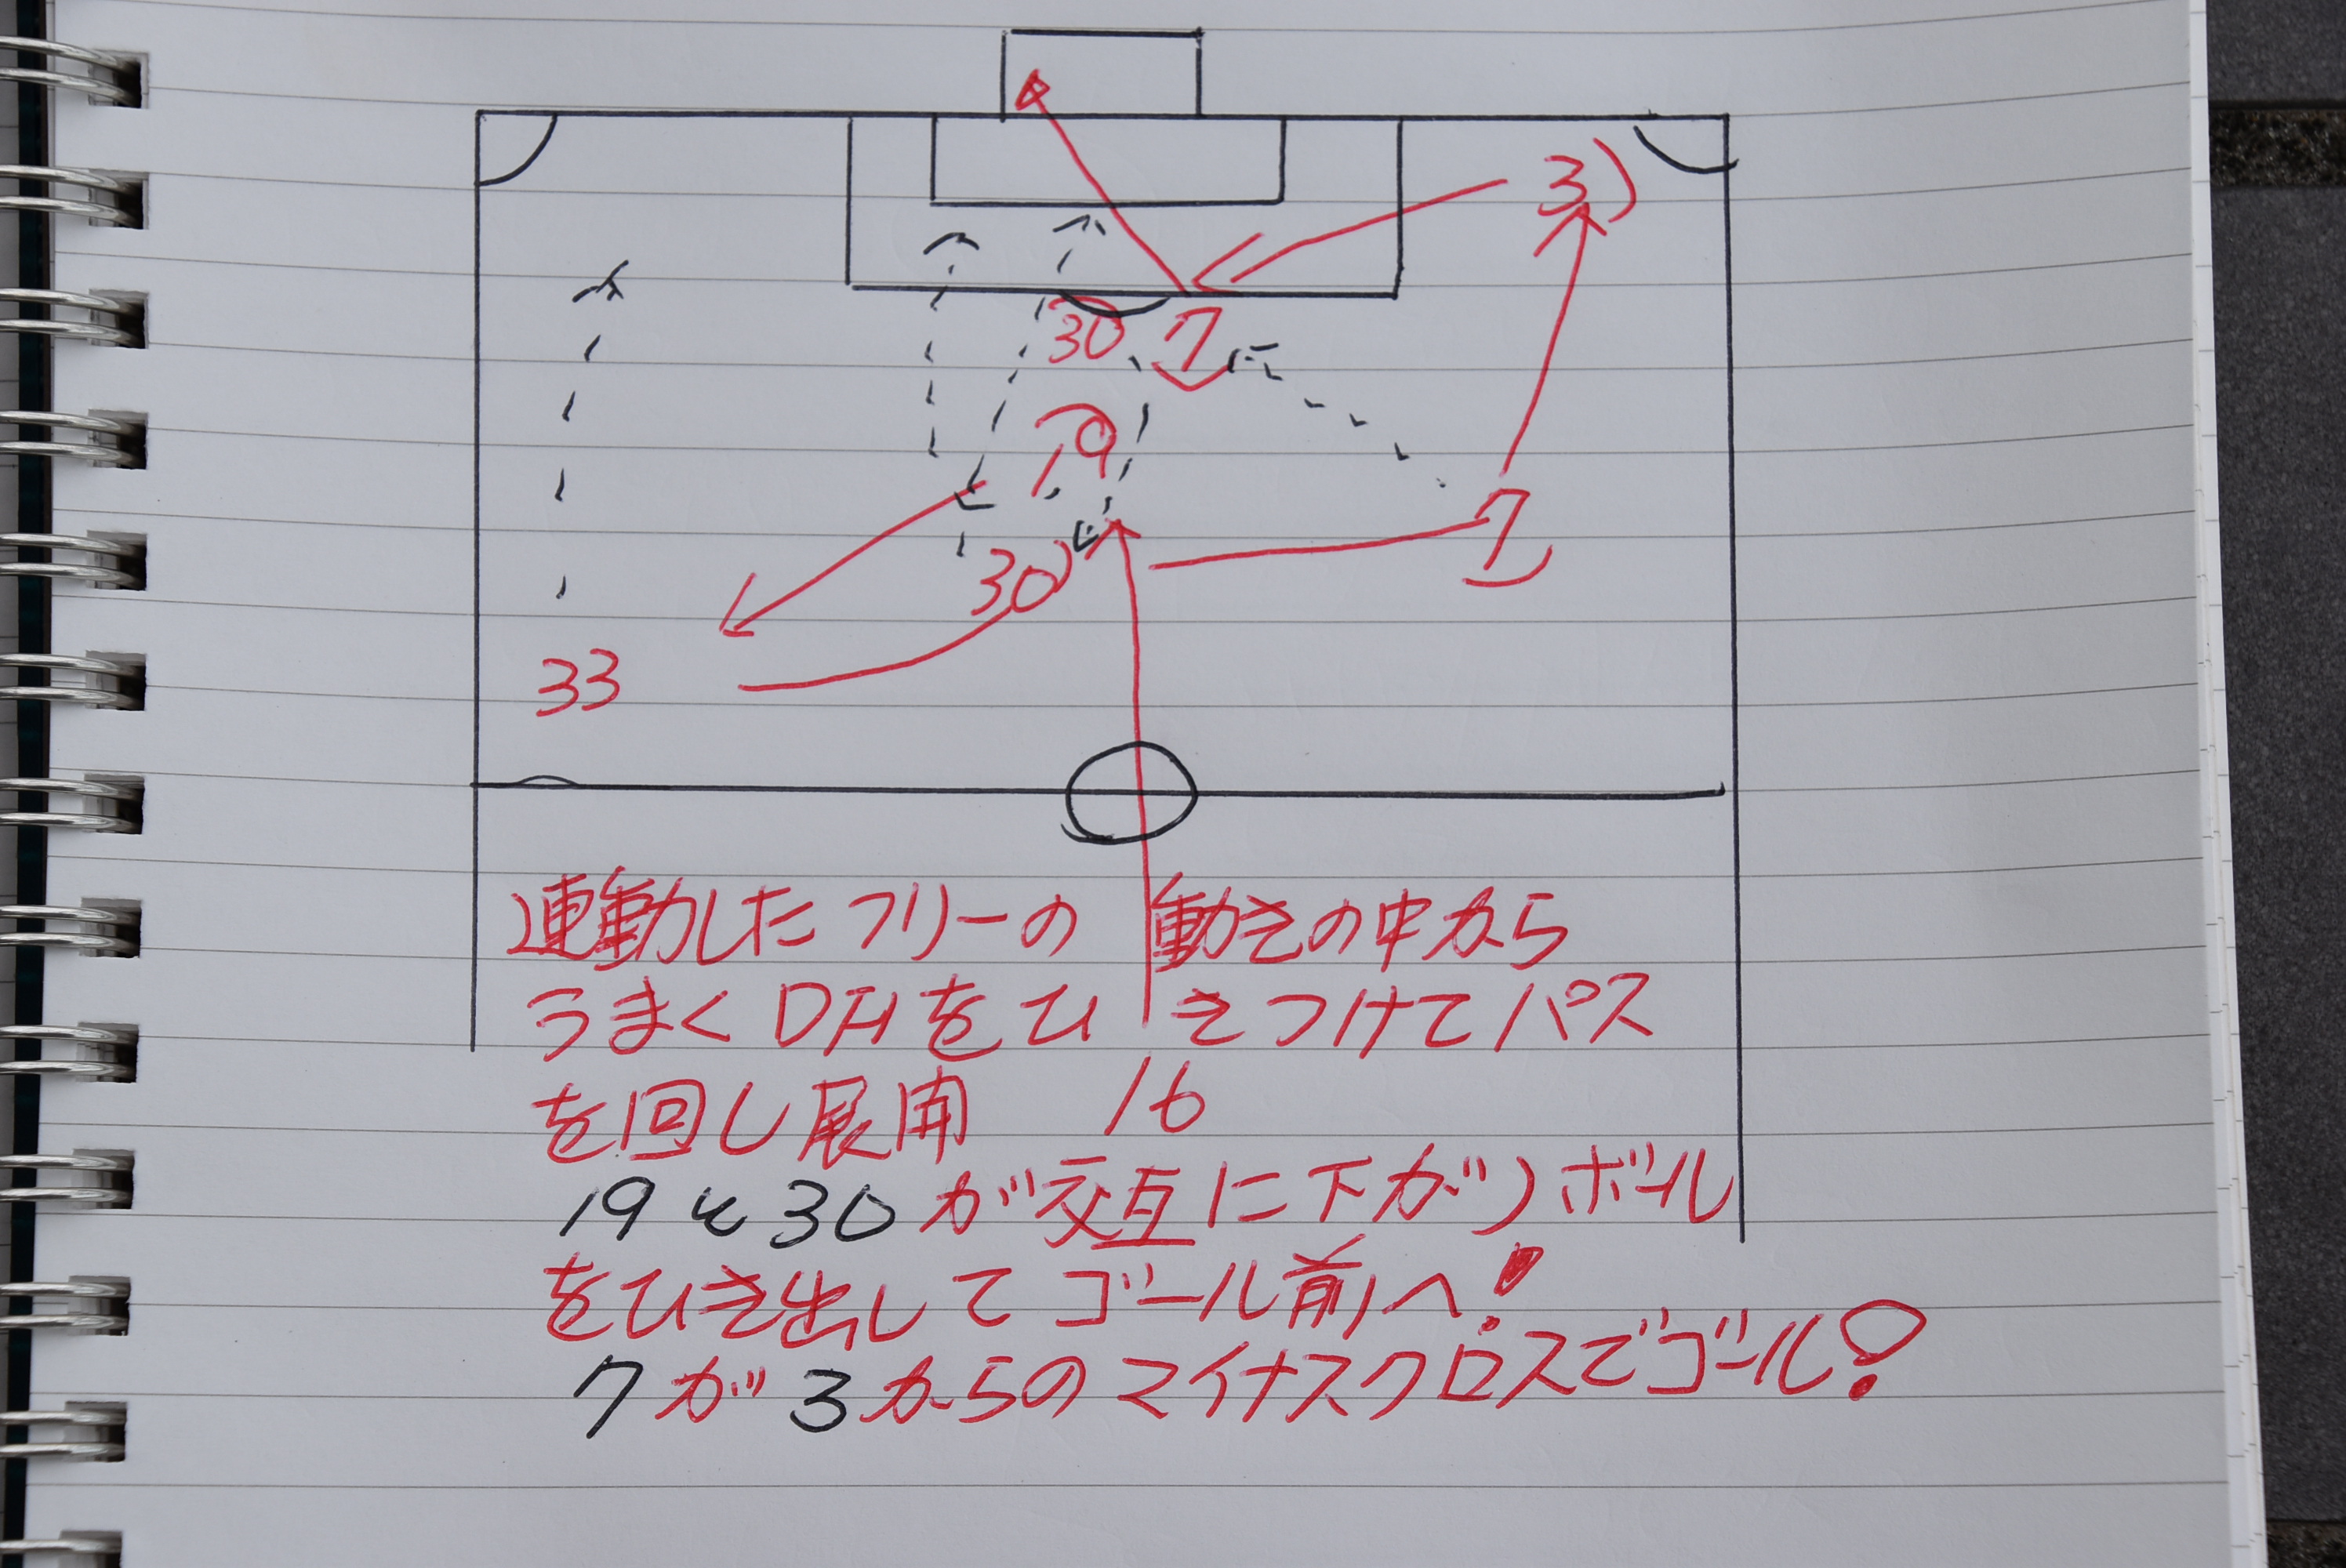 3
30 7
19
7
30
33
連動したフリーの動きの中から
うまくDFをひきつけてパス
を回し展開 16
19と30が交互に下がりボール
をひき出してゴール前へ!
7が3からのマイナスクロスでゴール!